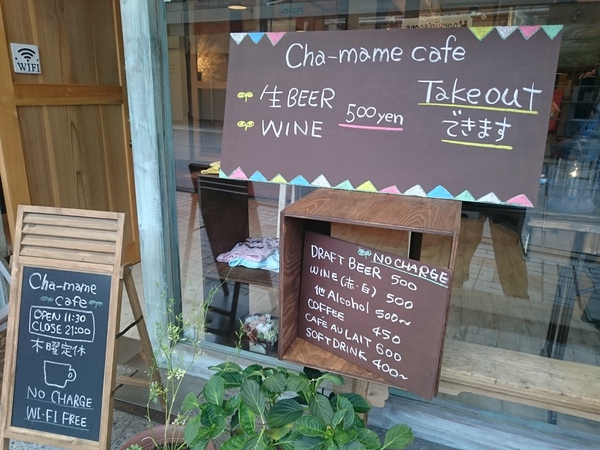 WIFI
Cha-mame cafe
生BEER
WINE
500yen
Takeout
できます
NO CHARGE
DRAFT BEER 500
WINE(赤・白) 500
他 Alcohol 500~
COFFEE 450
CAFE AU LAIT 600
SOFT DRINK 400~
Cha-mame
cafe
OPEN 11:30
CLOSE 21:00
木曜定休
NO CHARGE
WI-FI FREE